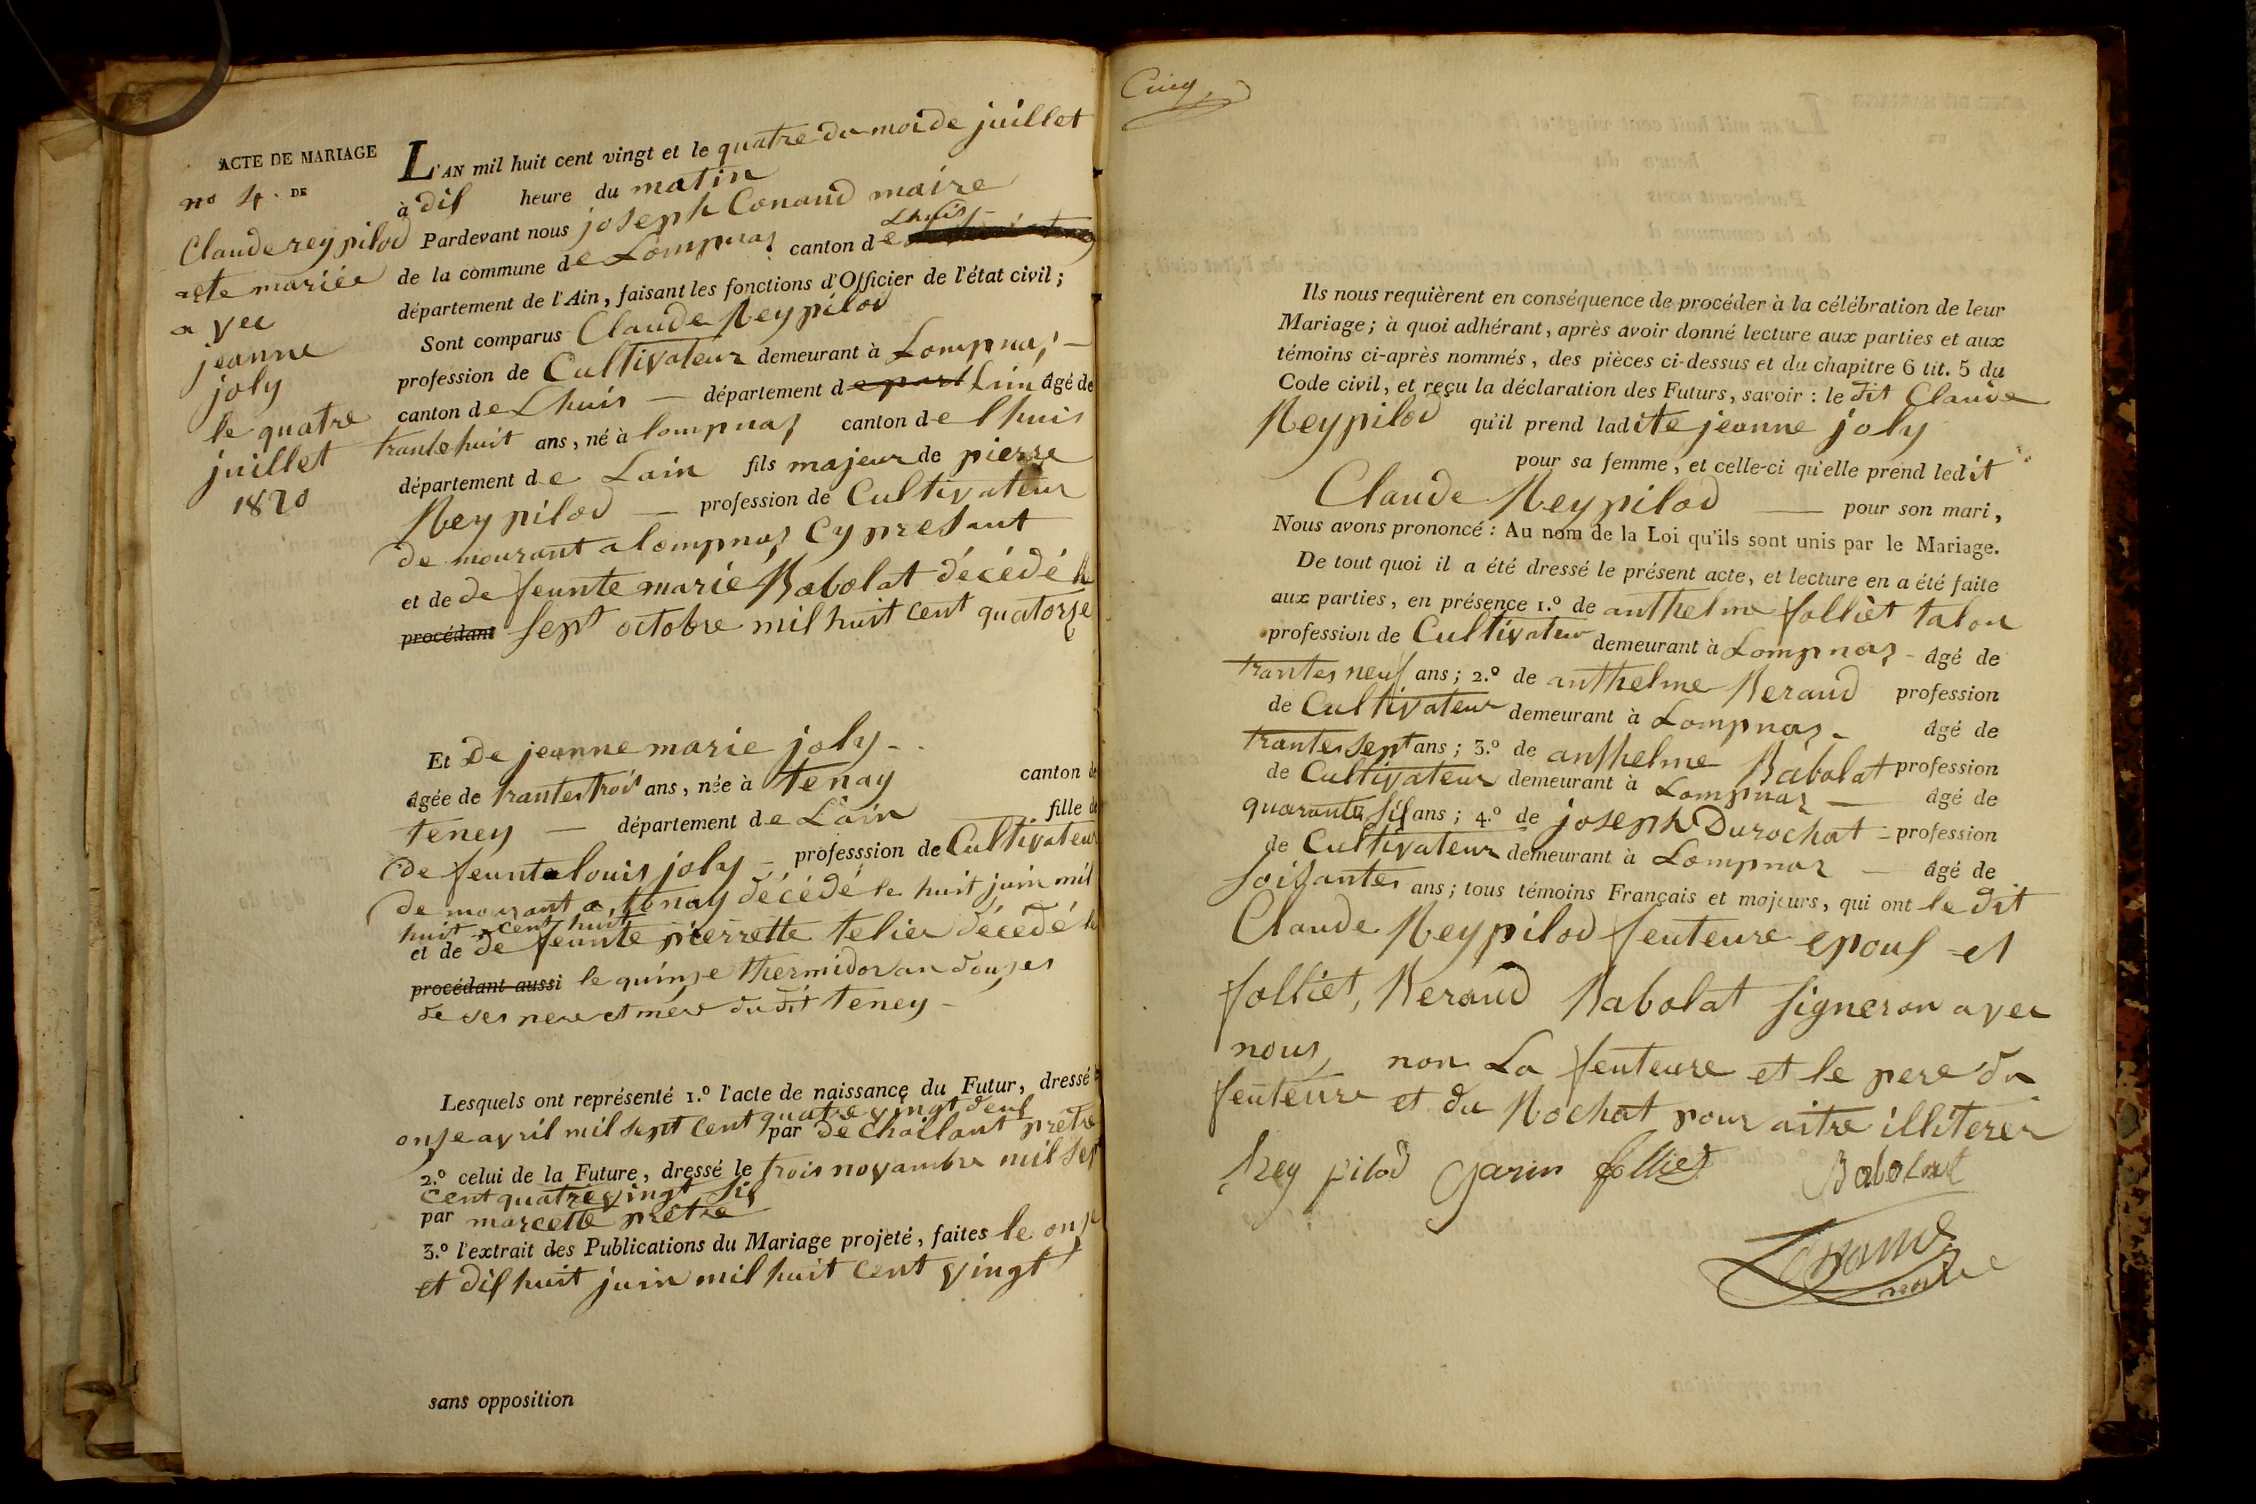 ACTE DE MARIAGE
no 4. DE
Claude rey pilod
acte mariée
avec
jeanne
joly
le quatre
juillet
1820
L'AN mil huit cent vingt et le quatre du moi de juillet
à dis heure du matin
Pardevant nous joseph Conand maire
de la commune de Lompnas canton de Lhuis
département de l'Ain, faisant les fonctions d'Officier de l'état civil;
Sont comparus Claude Reypilod
profession de Cultivateur demeurant à Lompnas
canton de Lhuis — département de part Lain âgé de
trantehuit ans, né à lompnas canton de lhuis
département de Lain fils majeur de pierre
Reypilod — profession de Cultivateur
demourant a lompnas Cy presant
et de de feunte marie Babolat décédé le
procédant sept octobre mil huit cent quatorze
Et De jeanne marie joly
âgée de trantes trois ans, née à tenay canton de
teney — département de Lain fille de
de feunte louis joly — professsion de Cultivateur
demourant a tenay décédé le huit juin mil
huit cent huit
et de de feunte pierrette telier décédé le
procédant aussi le quinse thermidor an douses
de ses pere et mere du dit teney —
Lesquels ont représenté 1.º l'acte de naissance du Futur, dressé le
onse avril mil sept cent quatre vingt deus
par De Choilant prêtre
2.º celui de la Future, dressé le trois novambre mil sept
cent quatre vingt sis
par marcette prêtre
3.º l'extrait des Publications du Mariage projeté, faites le onse
et dis huit juin mil huit cent vingt
sans opposition
Cinq
Ils nous requièrent en conséquence de procéder à la célébration de leur
Mariage; à quoi adhérant, après avoir donné lecture aux parties et aux
témoins ci-après nommés, des pièces ci-dessus et du chapitre 6 tit. 5 du
Code civil, et reçu la déclaration des Futurs, savoir: le dit Claude
Reypilod qu'il prend ladite jeanne joly
pour sa femme, et celle-ci qu'elle prend ledit
Claude Reypilod — pour son mari,
Nous avons prononcé: Au nom de la Loi qu'ils sont unis par le Mariage.
De tout quoi il a été dressé le présent acte, et lecture en a été faite
aux parties, en présence 1.º de anthelme folliet talon
profession de Cultivateur demeurant à Lompnas - âgé de
trantes neuf ans; 2.º de anthelme Beraud profession
de Cultivateur demeurant à Lompnas - âgé de
trantes sept ans; 3.º de anthelme Babolat profession
de Cultivateur demeurant à Lompnas — âgé de
quarante sis ans; 4.º de joseph Durochat - profession
de Cultivateur demeurant à Lompnas — âgé de
soissantes ans; tous témoins Français et majeurs, qui ont le dit
Claude Reypilod feuteure epous et
folliet, Beraud Babolat signeron avec
nous, non La feuteure et le pere du
feuteure et du Rochat pour aitre illiterer
Rey pilod folliet Babolat
Conand
maire